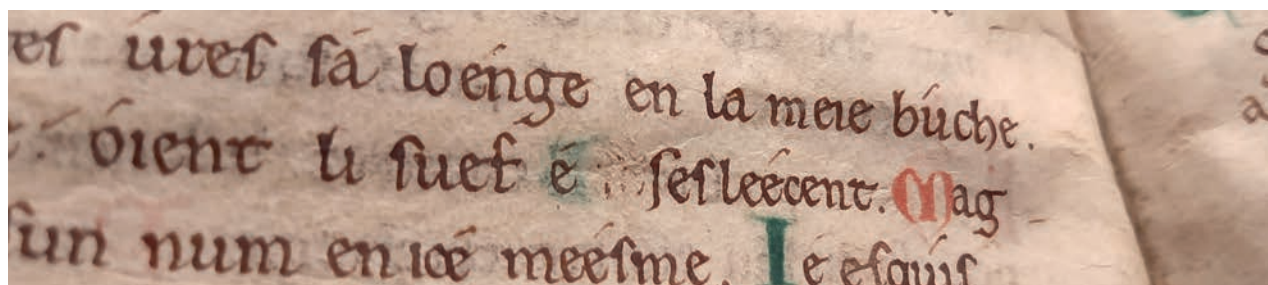 es úres sá loénge en la meie búche.
óient li suef é sesleécent. Mag
sun num en icé meésme. Ie esquis